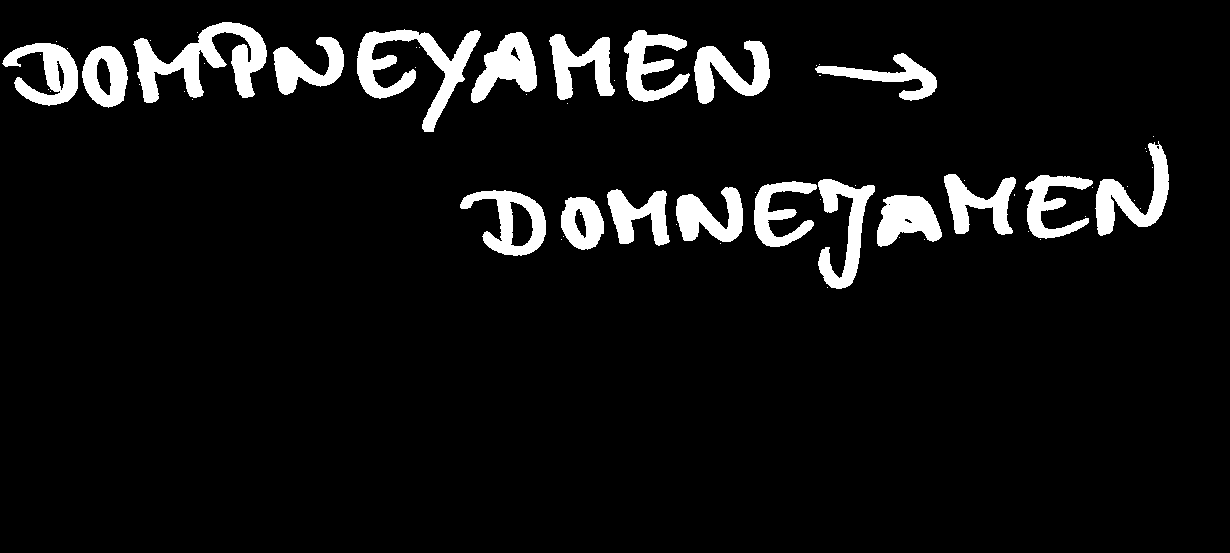 DOMPNEYAMEN →
DOMNEJAMEN